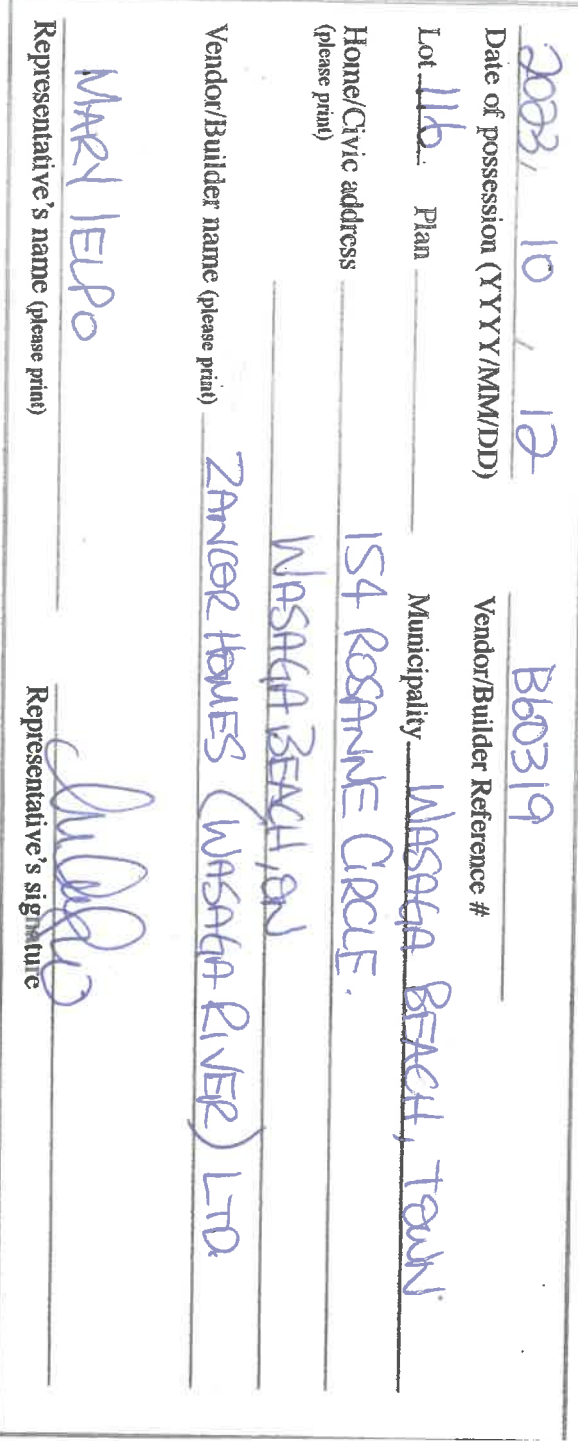 2023, 10, 12 B60319
Date of possession (YYYY/MM/DD) Vendor/Builder Reference #
Lot 116 Plan Municipality WASAGA BEACH, TOWN
Home/Civic address 154 ROSANNE CIRCLE.
(please print)
WASAGA BEACH, ON
Vendor/Builder name (please print) ZANCOR HOMES (WASAGA RIVER) LTD.
MARY IELPO
Representative's name (please print) Representative's signature